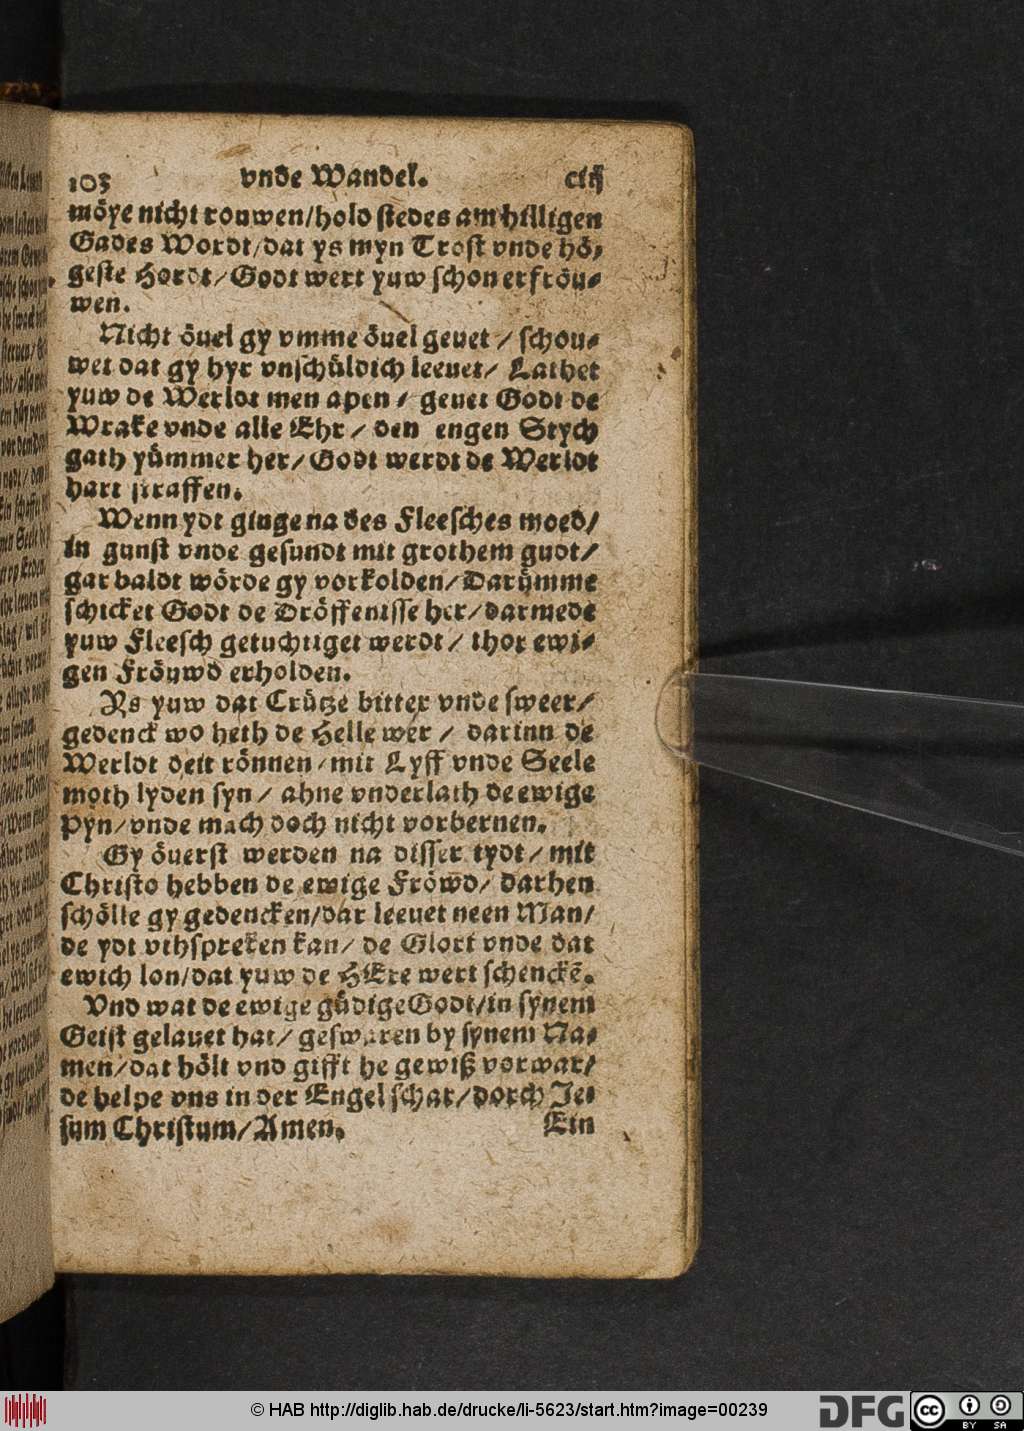 103 vnde Wandel. ciij
möye nicht rouwen/hold stedes am hilligen
Gades Wordt/dat ys myn Trost vnde hö⸗
geste Hordt/Godt wert yuw schon erfröu⸗
wen.
Nicht öuel gy vmme öuel geuet/ schou⸗
wet dat gy hyr vnschüldich leeuet/ Lathet
yuw de Werldt men apen/ geuet Godt de
Wrake vnde alle Ehr/ den engen Stych
gath yümmer her/Godt werdt de Werldt
hart straffen.
Wenn ydt ginge na des Fleesches moed/
in gunst vnde gesundt mit grothem gudt/
gar baldt wörde gy vorkolden/Darümme
schicket Godt de Dröffenisse her/darmede
yuw Fleesch getuchtiget werdt/ thor ewi⸗
gen Fröuwd erholden.
Ys yuw dat Crütze bitter vnde sweer/
gedenck wo heth de Helle wer/ darinn de
Werldt deit rönnen/mit Lyff vnde Seele
moth lyden syn/ ahne vnderlath de ewige
Pyn/vnde mach doch nicht vorbernen.
Gy öuerst werden na disser tydt/ mit
Christo hebben de ewige Fröwd/ darhen
schölle gy gedencken/dar leeuet neen Man/
de ydt vthspreken kan/ de Glori vnde dat
ewich lon/dat yuw de HEre wert schenckē.
Vnd wat de ewige güdige Godt/in synem
Geist gelauet hat/ geswaren by synem Na⸗
men/dat hölt vnd gifft he gewiß vorwar/
de helpe vns in der Engel schar/dorch Je⸗
sum Christum/Amen.
Ein
© HAB http://diglib.hab.de/drucke/li-5623/start.htm?image=00239
DFG
cc BY SA